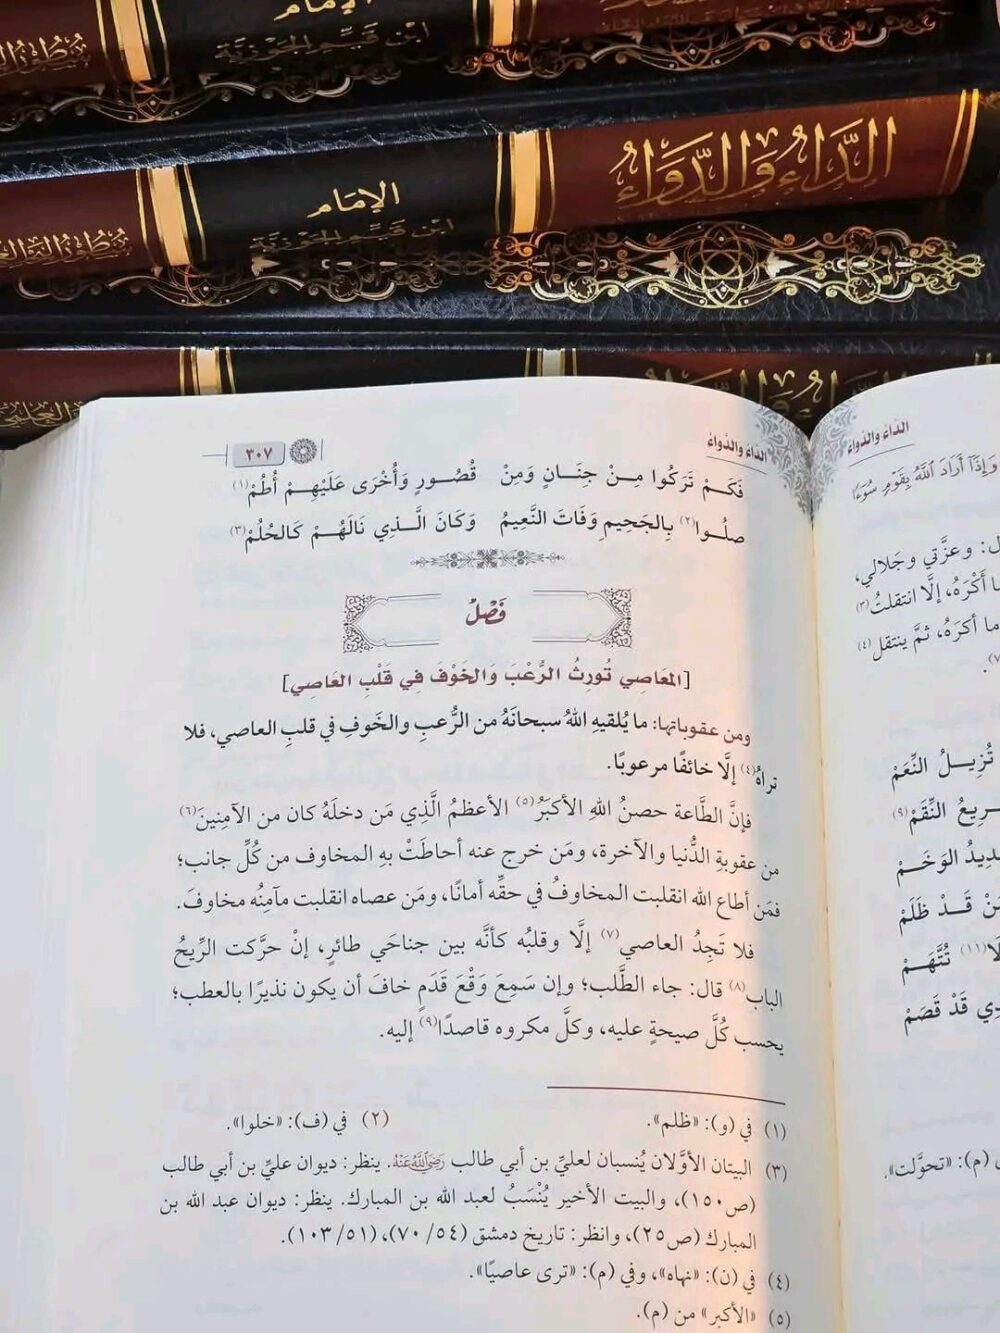 الإمام
ابن قيم الجوزية
الدَّاءُ وَالدَّوَاءُ
الإمام
ابن قيم الجوزية
الداء والدواء
٣٠٧
فَكَمْ تَرَكُوا مِـنْ جِنَـانٍ وَمِنْ قُصُـورٍ وَأُخْرَى عَلَيْهِـمْ أُطُمْ(١)
صلُـوا(٢) بِالجَحِيمِ وَفَاتَ النَّعِيمُ وَكَانَ الَّـذِي نَالَهُـمْ كَالحُلُمْ(٣)
فَصْلٌ
[المَعَاصِي تُورِثُ الرُّعْبَ وَالخَوْفَ فِي قَلْبِ العَاصِي]
ومن عقوباتها: ما يُلقيهِ اللهُ سبحانَهُ من الرُّعبِ والخَوفِ في قلبِ العاصي، فلا
تراهُ(٤) إلَّا خائفًا مرعوبًا.
فإنَّ الطَّاعة حصنُ اللهِ الأكبَرُ(٥) الأعظمُ الَّذِي مَن دخلَهُ كان من الآمنِينَ(٦)
من عقوبةِ الدُّنيا والآخرة، ومَن خرج عنه أحاطَتْ بهِ المخاوف من كُلِّ جانب؛
فمَن أطاع الله انقلبت المخاوفُ في حقِّه أمانًا، ومَن عصاه انقلبت مآمِنُه مخاوفَ.
فلا تَجِدُ العاصي(٧) إلَّا وقلبُه كأنَّه بين جناحَي طائرٍ، إنْ حرَّكت الرِّيحُ
الباب(٨) قال: جاء الطَّلب؛ وإن سَمِعَ وَقْعَ قَدَمٍ خافَ أن يكون نذيرًا بالعطب؛
يحسب كُلَّ صيحةٍ عليه، وكلَّ مكروه قاصدًا(٩) إليه.
(١) في (و): «ظلم».
(٢) في (ف): «خلوا».
(٣) البيتان الأوَّلان يُنسبان لعليِّ بن أبي طالب رَضِيَ اللَّهُ عَنْهُ. ينظر: ديوان عليِّ بن أبي طالب
(ص١٥٠)، والبيت الأخير يُنْسَبُ لعبد الله بن المبارك. ينظر: ديوان عبد الله بن
المبارك (ص٢٥)، وانظر: تاريخ دمشق (٥٤/ ٧٠)، (٥١/ ١٠٣).
(٤) في (ن): «نهاه»، وفي (م): «ترى عاصيًا».
(٥) «الأكبر» من (م).
الداء والدواء
وَإِذَآ أَرَادَ ٱللَّهُ بِقَوۡمٖ سُوٓءٗا
وعزَّتي وجَلالي،
أَكْرَهُ، إلَّا انتقلتُ(٣)
ما أكرَهُ، ثمَّ ينتقل(٤)
تُزِيـلُ النِّعَمْ
النِّقَمْ(٩)
الوَخَـمْ
قَـدْ ظَلَمْ
تُتَّهَـمْ
قَدْ قَصَمْ
(م): «تحوَّلت».